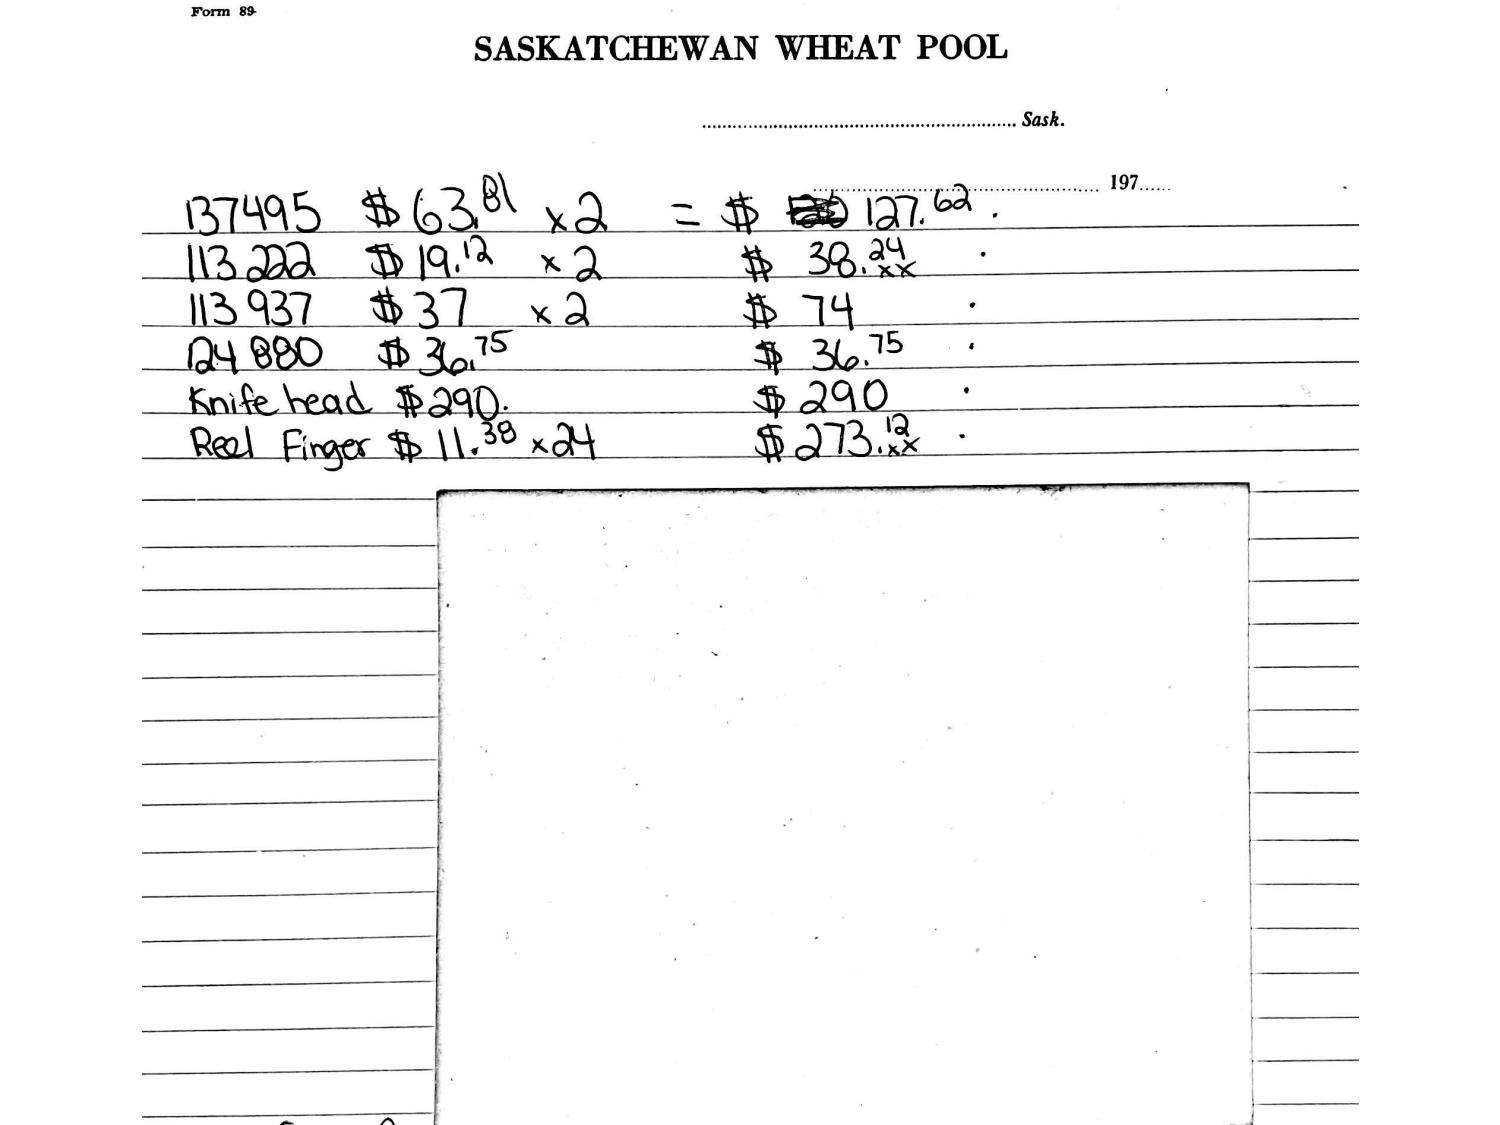 Form 89
SASKATCHEWAN WHEAT POOL
Sask.
197
137495 $ 63.81 x 2 = $ 127.62
113222 $ 19.12 x 2 $ 38.24 xx
113937 $ 37 x 2 $ 74
124880 $ 36.75 $ 36.75
Knife head $ 290. $ 290
Reel Finger $ 11.38 x 24 $ 273.12 xx